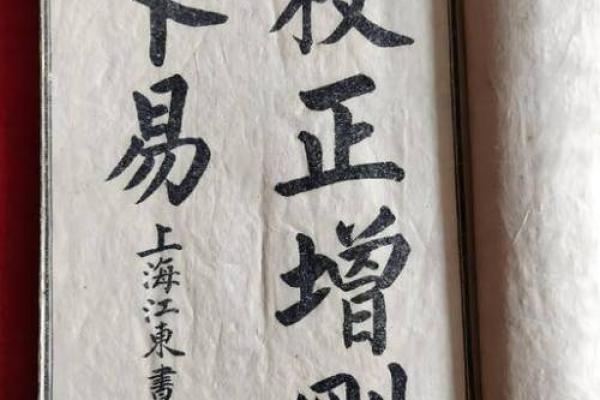 校正增刪
卜易
上海江東書